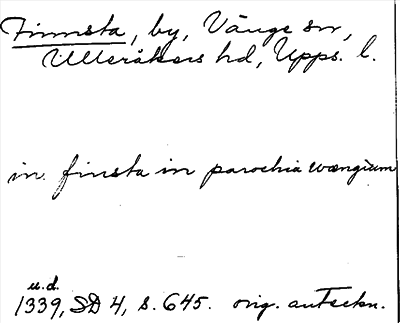 Finnsta, by, Vänge sn,
Ulleråkers hd, Upps. l.
in finsta in parochia wængium
u.d.
1339, SD 4, s. 645. orig. anteckn.